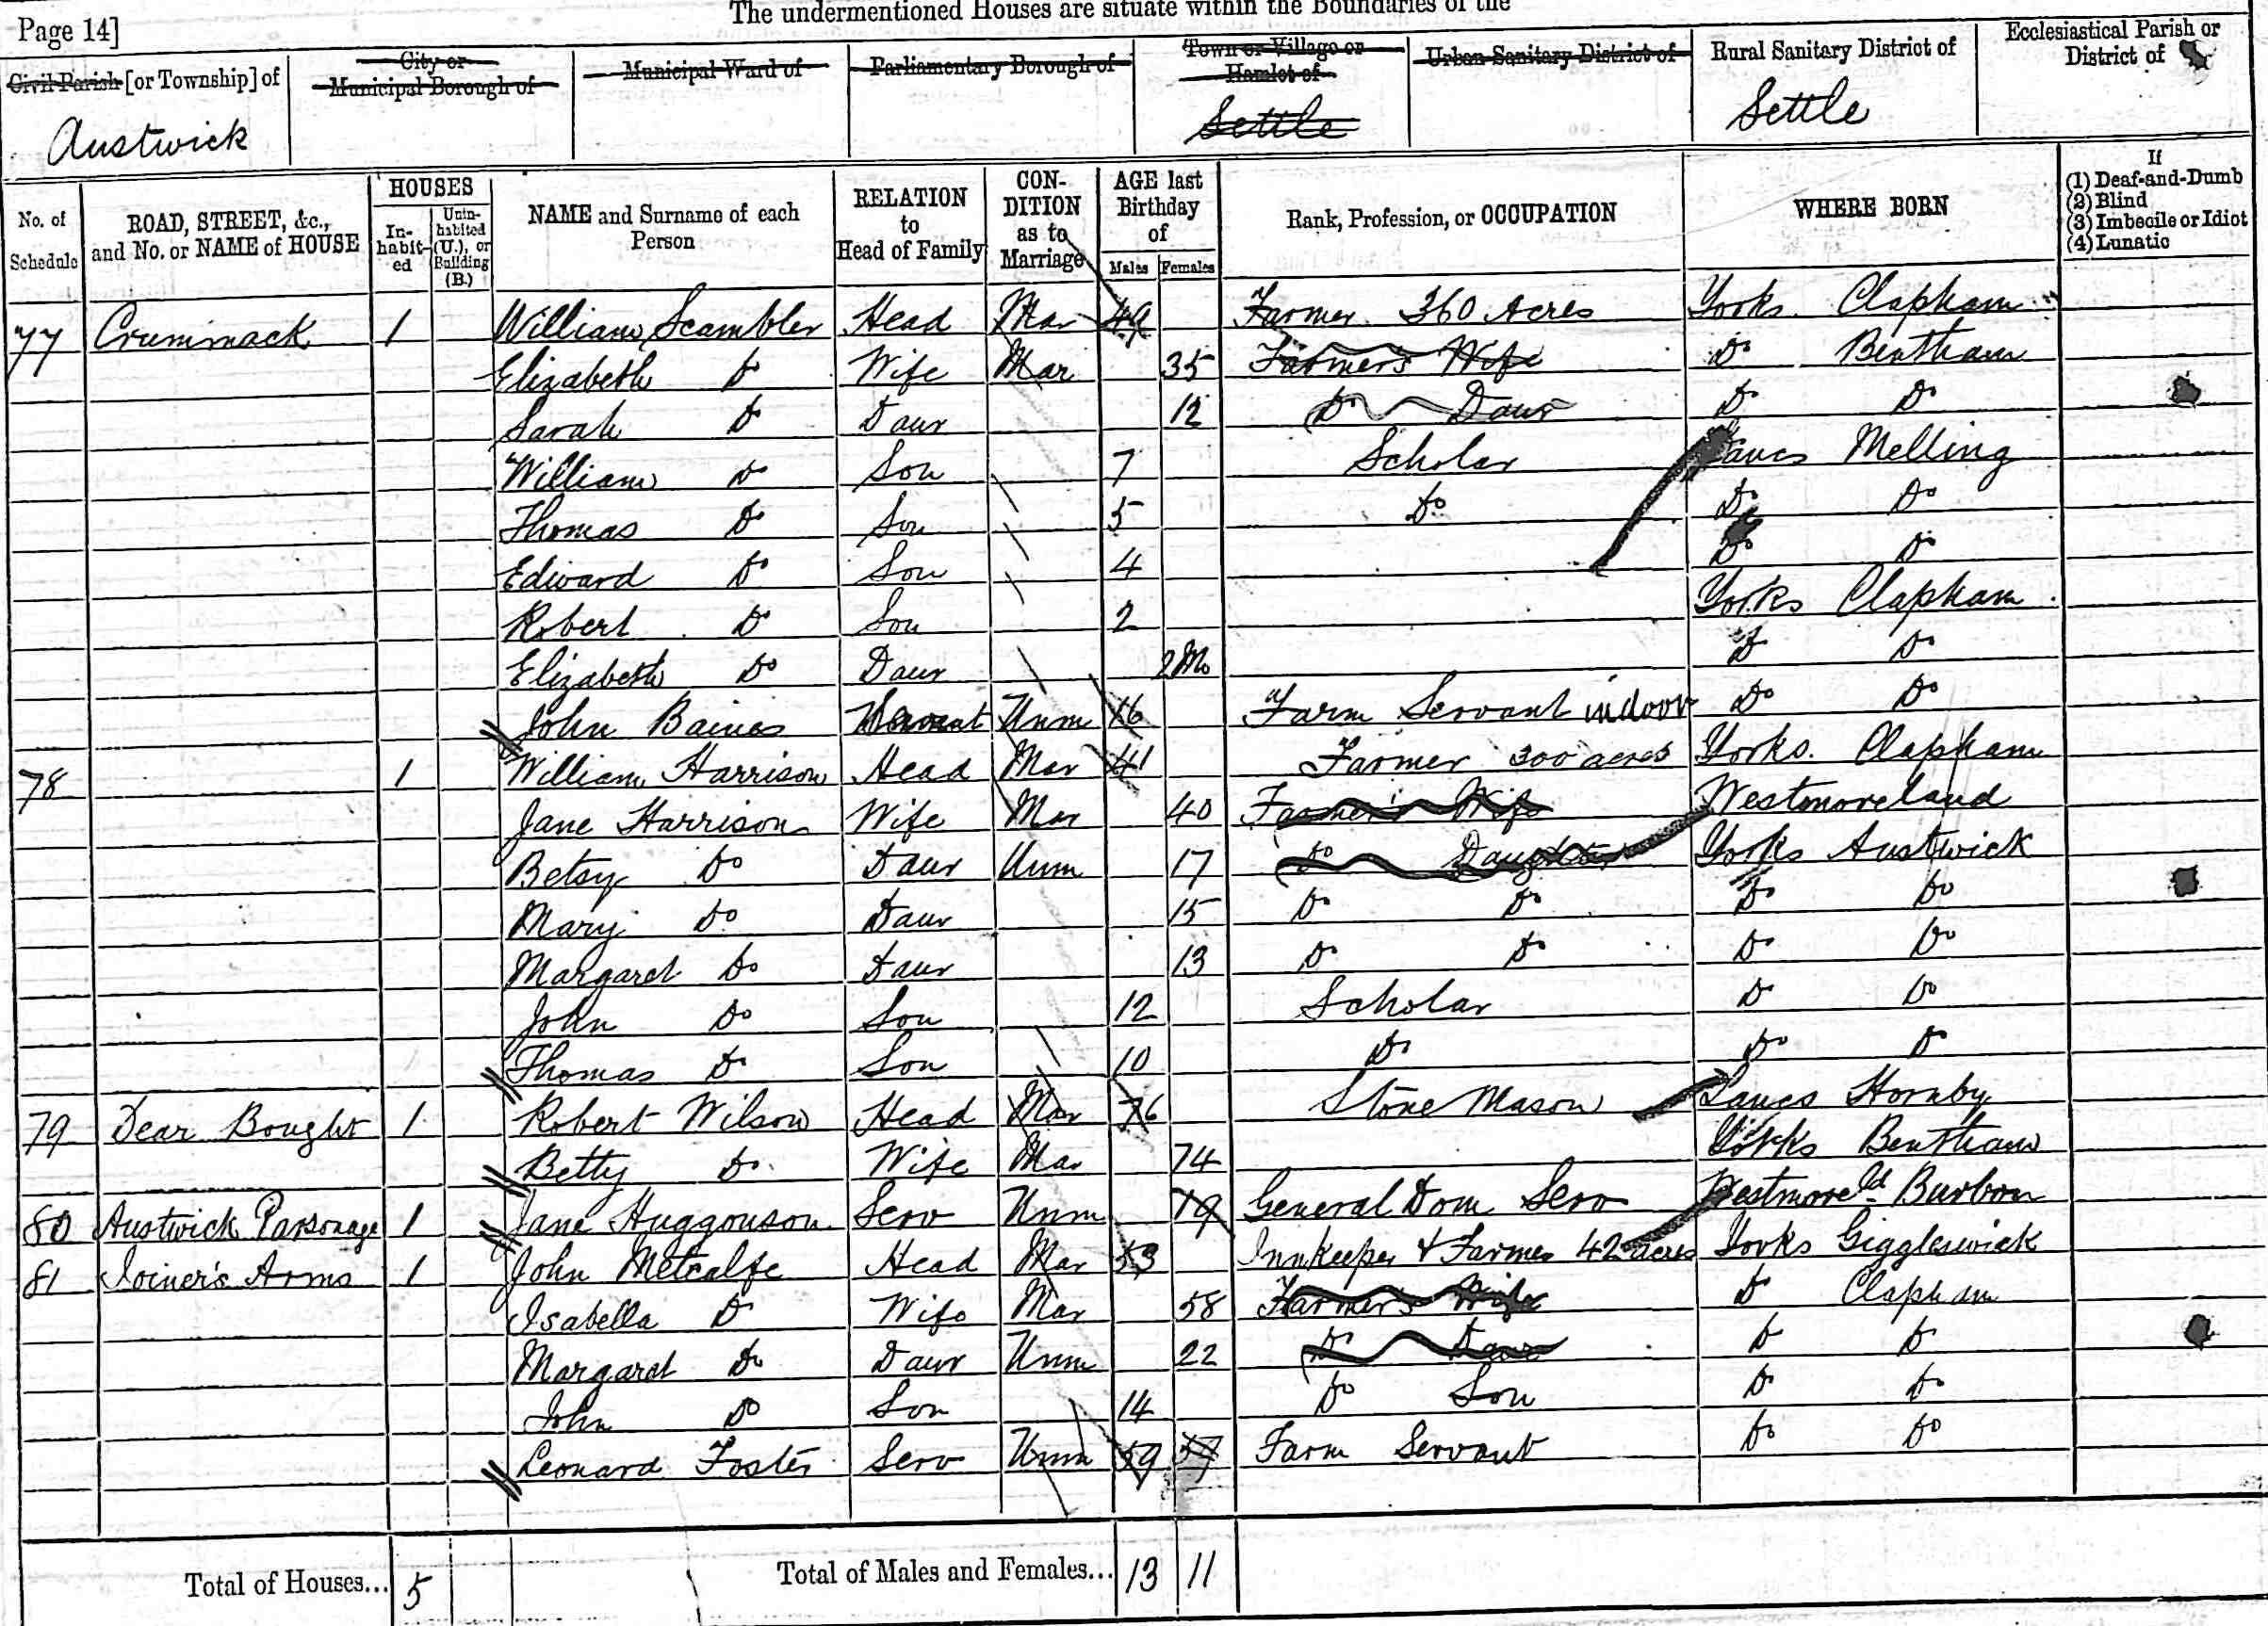 The undermentioned Houses are situate within the Boundaries of the
Page 14]
Civil Parish [or Township] of
City or
Municipal Borough of
Municipal Ward of
Parliamentary Borough of
Town or Village or
Hamlet of
Urban Sanitary District of
Rural Sanitary District of
Ecclesiastical Parish or
District of
Austwick Settle Settle
No. of
Schedule
ROAD, STREET, &c.,
and No. or NAME of HOUSE
HOUSES
In-
habit-
ed
Unin-
habited
(U.), or
Building
(B.)
NAME and Surname of each
Person
RELATION
to
Head of Family
CON-
DITION
as to
Marriage
AGE last
Birthday
of
Males Females
Rank, Profession, or OCCUPATION
WHERE BORN
If
(1) Deaf-and-Dumb
(2) Blind
(3) Imbecile or Idiot
(4) Lunatic
77 Crummack 1 William Scambler Head Mar 49 Farmer 360 Acres Yorks Clapham
Elizabeth Do Wife Mar 35 Farmer's Wife Do Bentham
Sarah Do Daur 12 Do Daur Do Do
William Do Son 7 Scholar Lancs Melling
Thomas Do Son 5 Do Do Do
Edward Do Son 4 Do Do
Robert Do Son 2 Yorks Clapham
Elizabeth Do Daur 2 Mo Do Do
John Baines Servant Unm 16 Farm Servant indoor Do Do
78 1 William Harrison Head Mar 41 Farmer 300 acres Yorks. Clapham
Jane Harrison Wife Mar 40 Farmer's Wife Westmoreland
Betsy Do Daur Unm 17 Do Daughter Yorks Austwick
Mary Do Daur 15 Do Do Do Do
Margaret Do Daur 13 Do Do Do Do
John Do Son 12 Scholar Do Do
Thomas Do Son 10 Do Do Do
79 Dear Bought 1 Robert Wilson Head Mar 76 Stone Mason Lancs Hornby
Betty Do Wife Mar 74 Yorks Bentham
80 Austwick Parsonage 1 Jane Huggonson Serv Unm 19 General Dom Serv Westmoreld Burbon
81 Joiner's Arms 1 John Metcalfe Head Mar 53 Innkeeper & Farmer 42 acres Yorks Giggleswick
Isabella Do Wife Mar 58 Farmer's Wife Do Clapham
Margaret Do Daur Unm 22 Do Daur Do Do
John Do Son 14 Do Son Do Do
Leonard Foster Serv Unm 59 Farm Servant Do Do
Total of Houses... 5 Total of Males and Females... 13 11